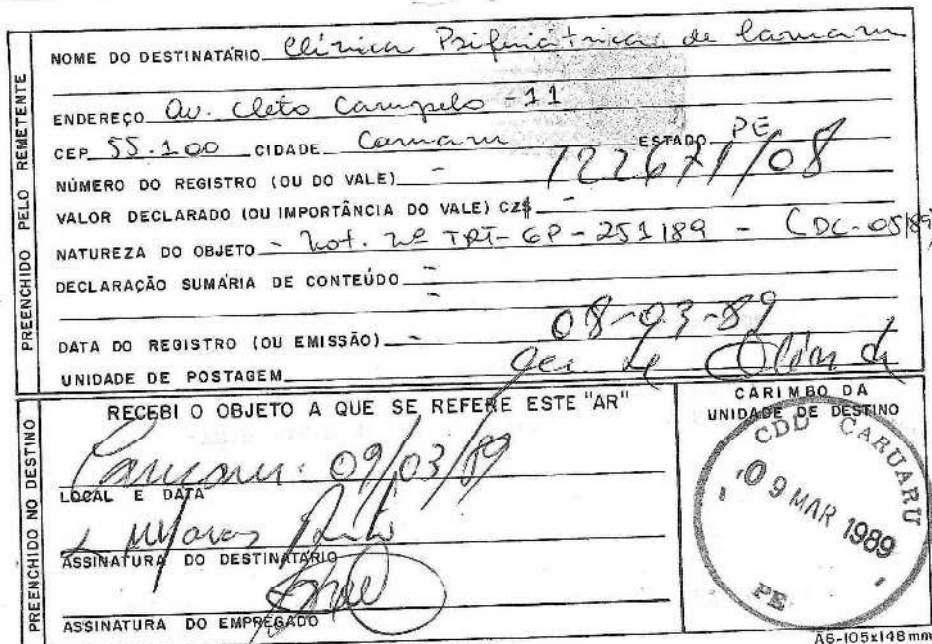 PREENCHIDO PELO REMETENTE
NOME DO DESTINATÁRIO Clínica de Caruaru
ENDEREÇO Av. Cleto Campelo - 11
CEP 55.100 CIDADE Caruaru ESTADO PE
NÚMERO DO REGISTRO (OU DO VALE) - 122671/08
VALOR DECLARADO (OU IMPORTÂNCIA DO VALE) CZ$ -
NATUREZA DO OBJETO - Not. Nº TRT-GP-251/89 - (DC-05/89)
DECLARAÇÃO SUMÁRIA DE CONTEÚDO -
-
DATA DO REGISTRO (OU EMISSÃO) - 08-03-89
UNIDADE DE POSTAGEM
PREENCHIDO NO DESTINO
RECEBI O OBJETO A QUE SE REFERE ESTE "AR"
Caruaru: 09/03/89
LOCAL E DATA
ASSINATURA DO DESTINATÁRIO
ASSINATURA DO EMPREGADO
CARIMBO DA
UNIDADE DE DESTINO
CDD CARUARU
09 MAR 1989
PE
A6-105x148mm